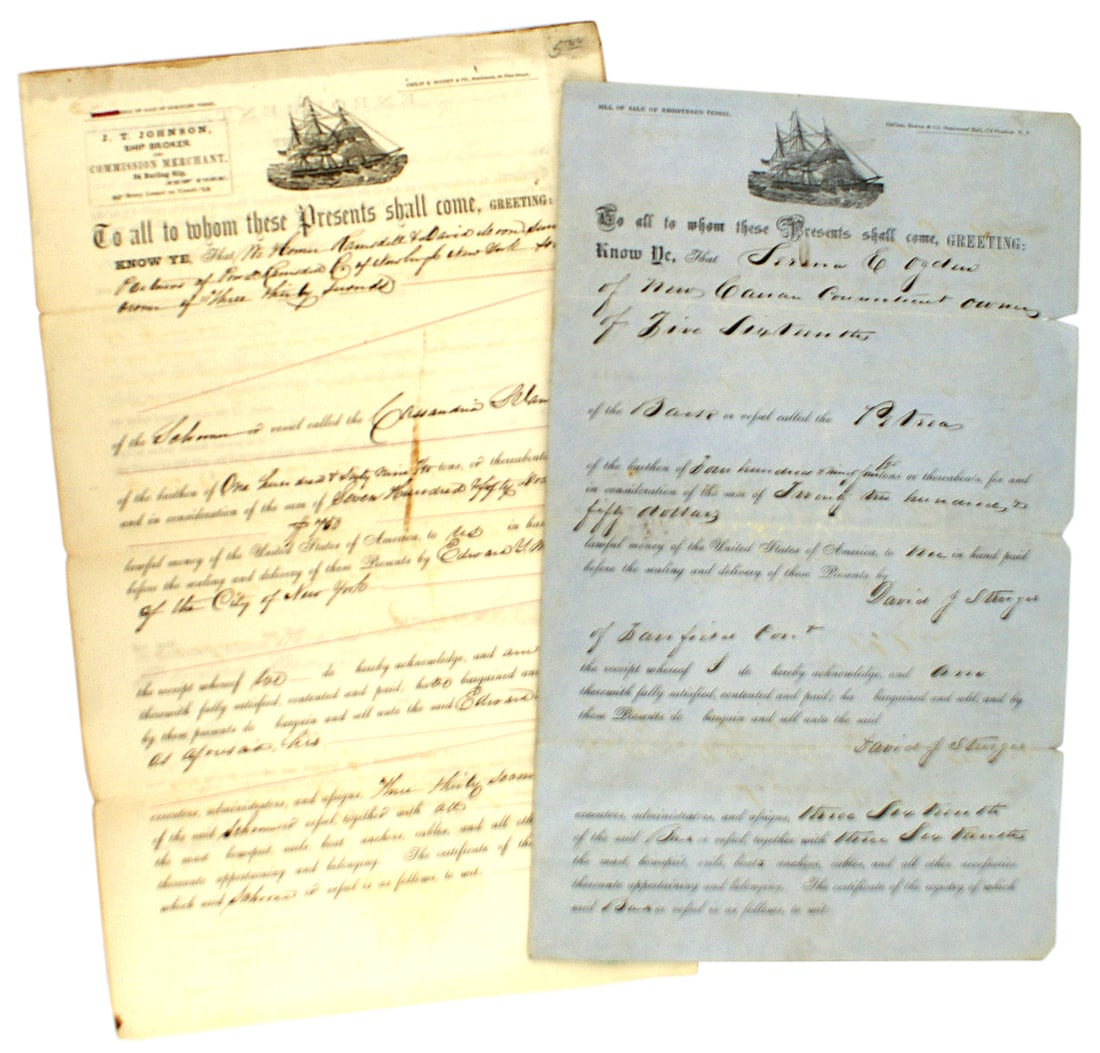 BILL OF SALE OF ENROLLED VESSEL.
J. T. JOHNSON,
SHIP BROKER
AND
COMMISSION MERCHANT,
To all to whom these Presents shall come, GREETING:
KNOW YE, That We Homer Ramsdell & David Moore
Partners of Ramsdell Co of Newburgh New York
owner of Three Thirty Seconds
of the Schooner or vessel called the Cassandria
of the burthen of One Hundred & Sixty Nine tons, or thereabouts
and in consideration of the sum of Seven Hundred & fifty
$750
lawful money of the United States of America, to us in
before the sealing and delivery of these Presents by Edward
of the City of New York
the receipt whereof we do hereby acknowledge, and am
therewith fully satisfied, contented and paid, bargained and
by them presents do bargain and sell unto the said Edward
as aforesaid, his
executors, administrators, and assigns, Three thirty
of the said Schooner or vessel, together with all
the mast, bowsprit, sails, boat, anchors, cables, and all
thereunto appertaining and belonging. The certificate of the
which said Schooner or vessel is as follows, to wit:
BILL OF SALE OF REGISTERED VESSEL.
To all to whom these Presents shall come, GREETING:
Know Ye, That Serena C Ogden
of New Canan Connecticut owner
of Five Sixteenths
of the Bark or vessel called the
of the burthen of Four hundred & tons or thereabouts, for and
in consideration of the sum of Twenty two hundred &
fifty dollars
lawful money of the United States of America, to me in hand paid
before the sealing and delivery of these Presents by
David J Sturges
of Fairfield Cont
the receipt whereof I do hereby acknowledge, and am
therewith fully satisfied, contented and paid; ha bargained and sold, and by
these Presents do bargain and sell unto the said
David J Sturges
executors, administrators, and assigns, three Sixteenth
of the said Bark or vessel, together with three Sixteenths
the mast, bowsprit, sails, boats, anchors, cables, and all other necessaries
thereunto appertaining and belonging. The certificate of the registry of which
said Bark or vessel is as follows, to wit: